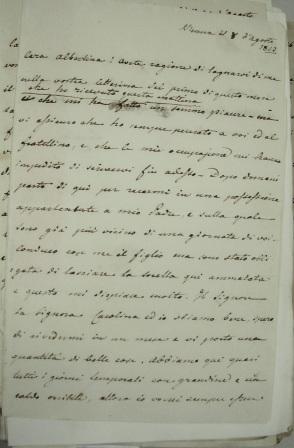 Vienna il 8 d'Agosto
Cara Albertina! avete ragione di lagnarvi di me
nella vostra letterina dei primo di questo mese
che ho ricevuta questa mattina
e che mi ha fatto sommo piacere ma
vi assicuro che ho sempre pensato a voi ed al
fratellino, e che le mie occupazioni mi hanno
impedito di scrivervi fin adesso. Dopo domani
parto di qui per recarmi in una possessione
appartenente a mio Padre, e sulla quale
sono già più vicino di una giornata di voi.
Conduco con me il figlio ma sono stato obli
gata di lasciare la sorella qui ammalata
e questo mi dispiace molto. Il Signore
la Signora Carolina ed io stiamo bene, spero
di rivedervi in un mese e vi porto una
quantità di belle cose, abbiamo qui quasi
tutti i giorni temporali con grandine e un
caldo orribile, allora io vorrei sempre esser